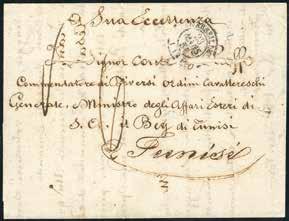 a Sua Eccellenza
Signor Conte Raffo
Commendatore di Diversi ordini Cavallereschi
Generale, e Ministro degli Affari Esteri di
S. A. il Bey di Tunisi
Tunisi